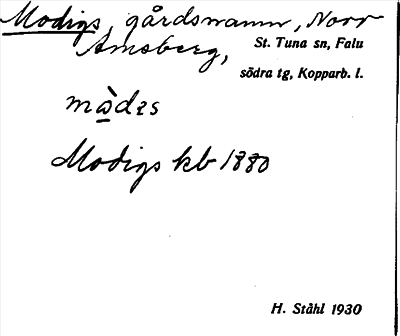 Modigs, gårdsnamn, Norr
Amsberg, St. Tuna sn, Falu
södra tg, Kopparb. l.
Modigs kb 1880
H. Ståhl 1930